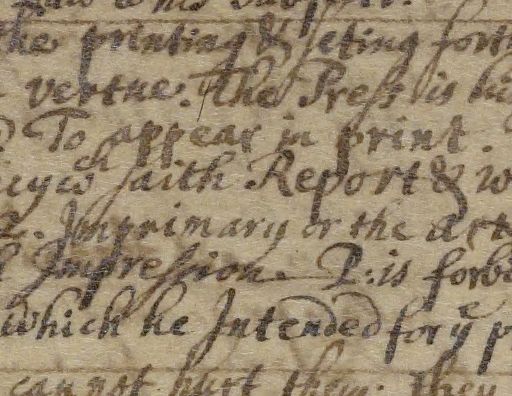 the printing & seting forth
vertue. The Press is
To appear in print.
saith Report &
Imprimary or the act
Impression. P: is forbi
which he Intended for yͤ p
cannot hurt them. they